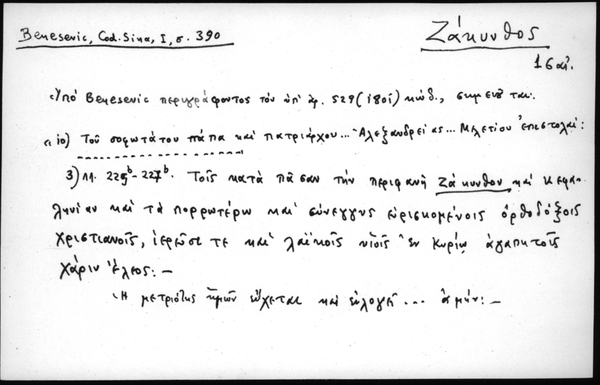 Benesevic, Cod. Sina, I, σ. 390
Ζάκυνθος
16 αἰ.
Ὑπὸ Benesevic περιγράφοντος τὸν ὑπ' ἀρ. 529 (1801) κώδ., σημειοῦται:
« 10) Τοῦ σοφωτάτου πάπα καὶ πατριάρχου... Ἀλεξανδρείας... Μελετίου ἐπιστολαί:
3) λλ. 225b-227b. Τοῖς κατὰ πᾶσαν τὴν περιφανῆ Ζάκυνθον καὶ Κεφαλ-
ληνίαν καὶ τὰ πορρωτέρω καὶ σύνεγγυς εὑρισκομένοις ὀρθοδόξοις
χριστιανοῖς, ἱερεῦσί τε καὶ λαϊκοῖς υἱοῖς ἐν Κυρίῳ ἀγαπητοῖς
χάριν ἔλεος: –
Ἡ μετριότης ἡμῶν εὔχεται καὶ εὐλογεῖ... ἀμήν: –